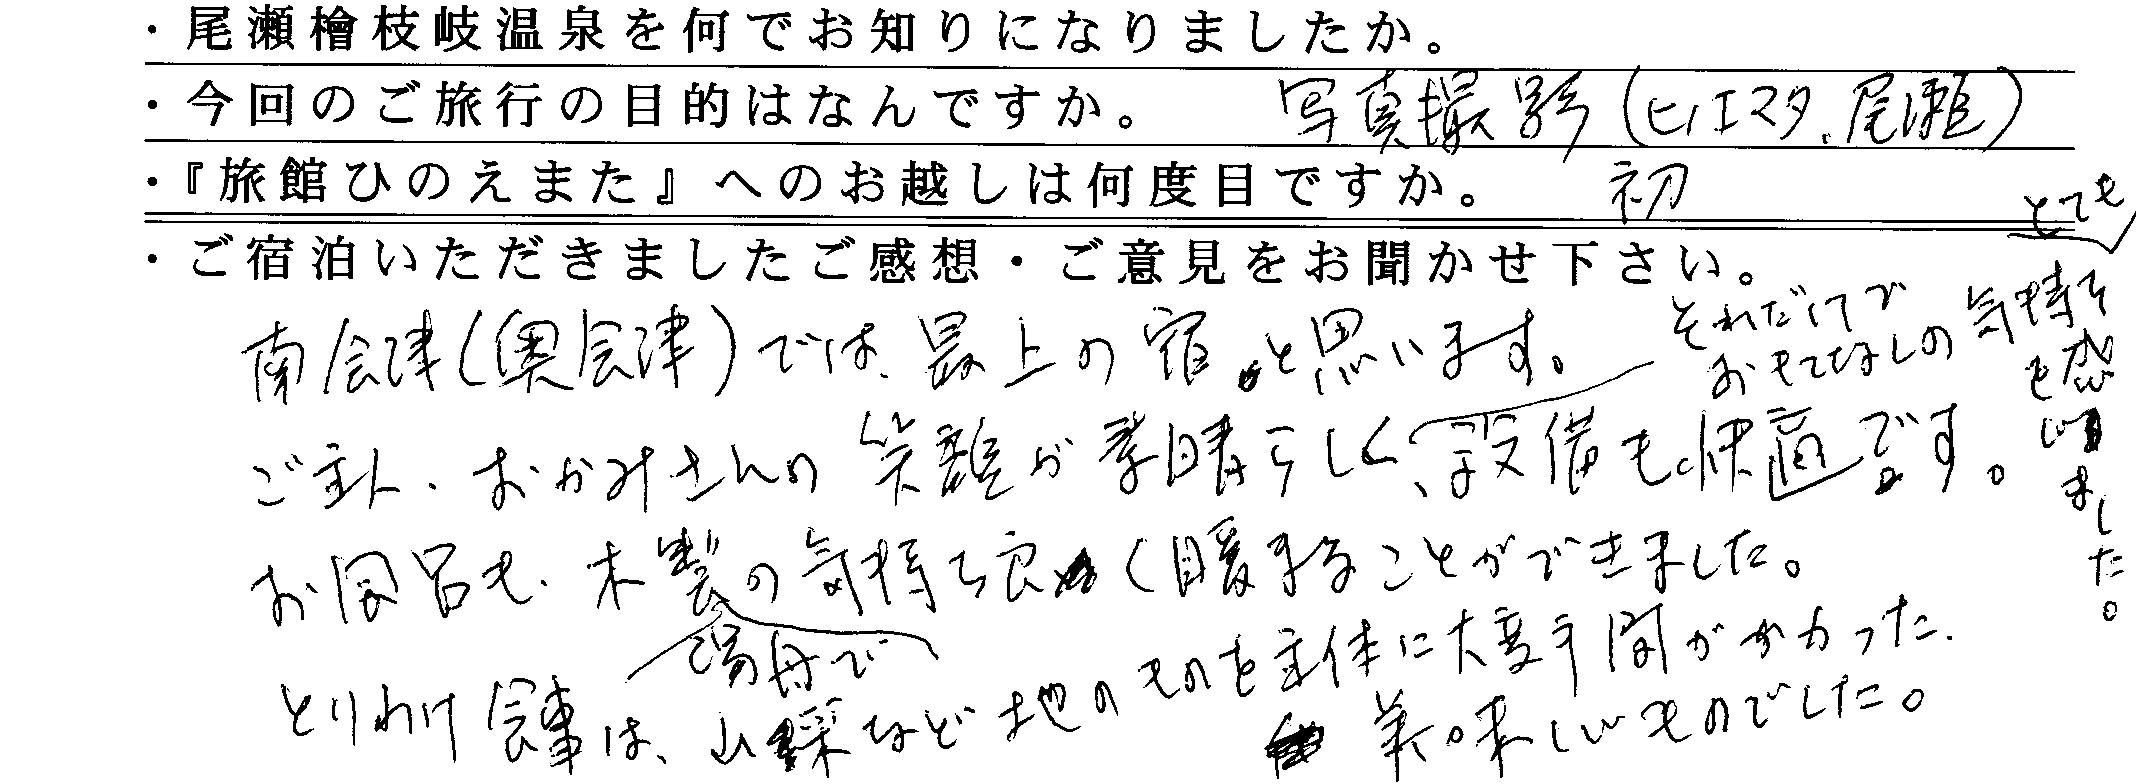 ・尾瀬檜枝岐温泉を何でお知りになりましたか。
・今回のご旅行の目的はなんですか。 写真撮影(ヒノエマタ、尾瀬)
・『旅館ひのえまた』へのお越しは何度目ですか。 初
・ご宿泊いただきましたご感想・ご意見をお聞かせ下さい。
南会津(奥会津)では、最上の宿と思います。
ご主人、おかみさんの笑顔が素晴らしく、設備も快適です。
それだけで
おもてなしの気持を
とても
も感じました。
お風呂も、木製の気持ち良く暖まることができました。
湯舟で
とりわけ食事は、山菜など地のものを主体に大変手間がかかった、
美味しいものでした。